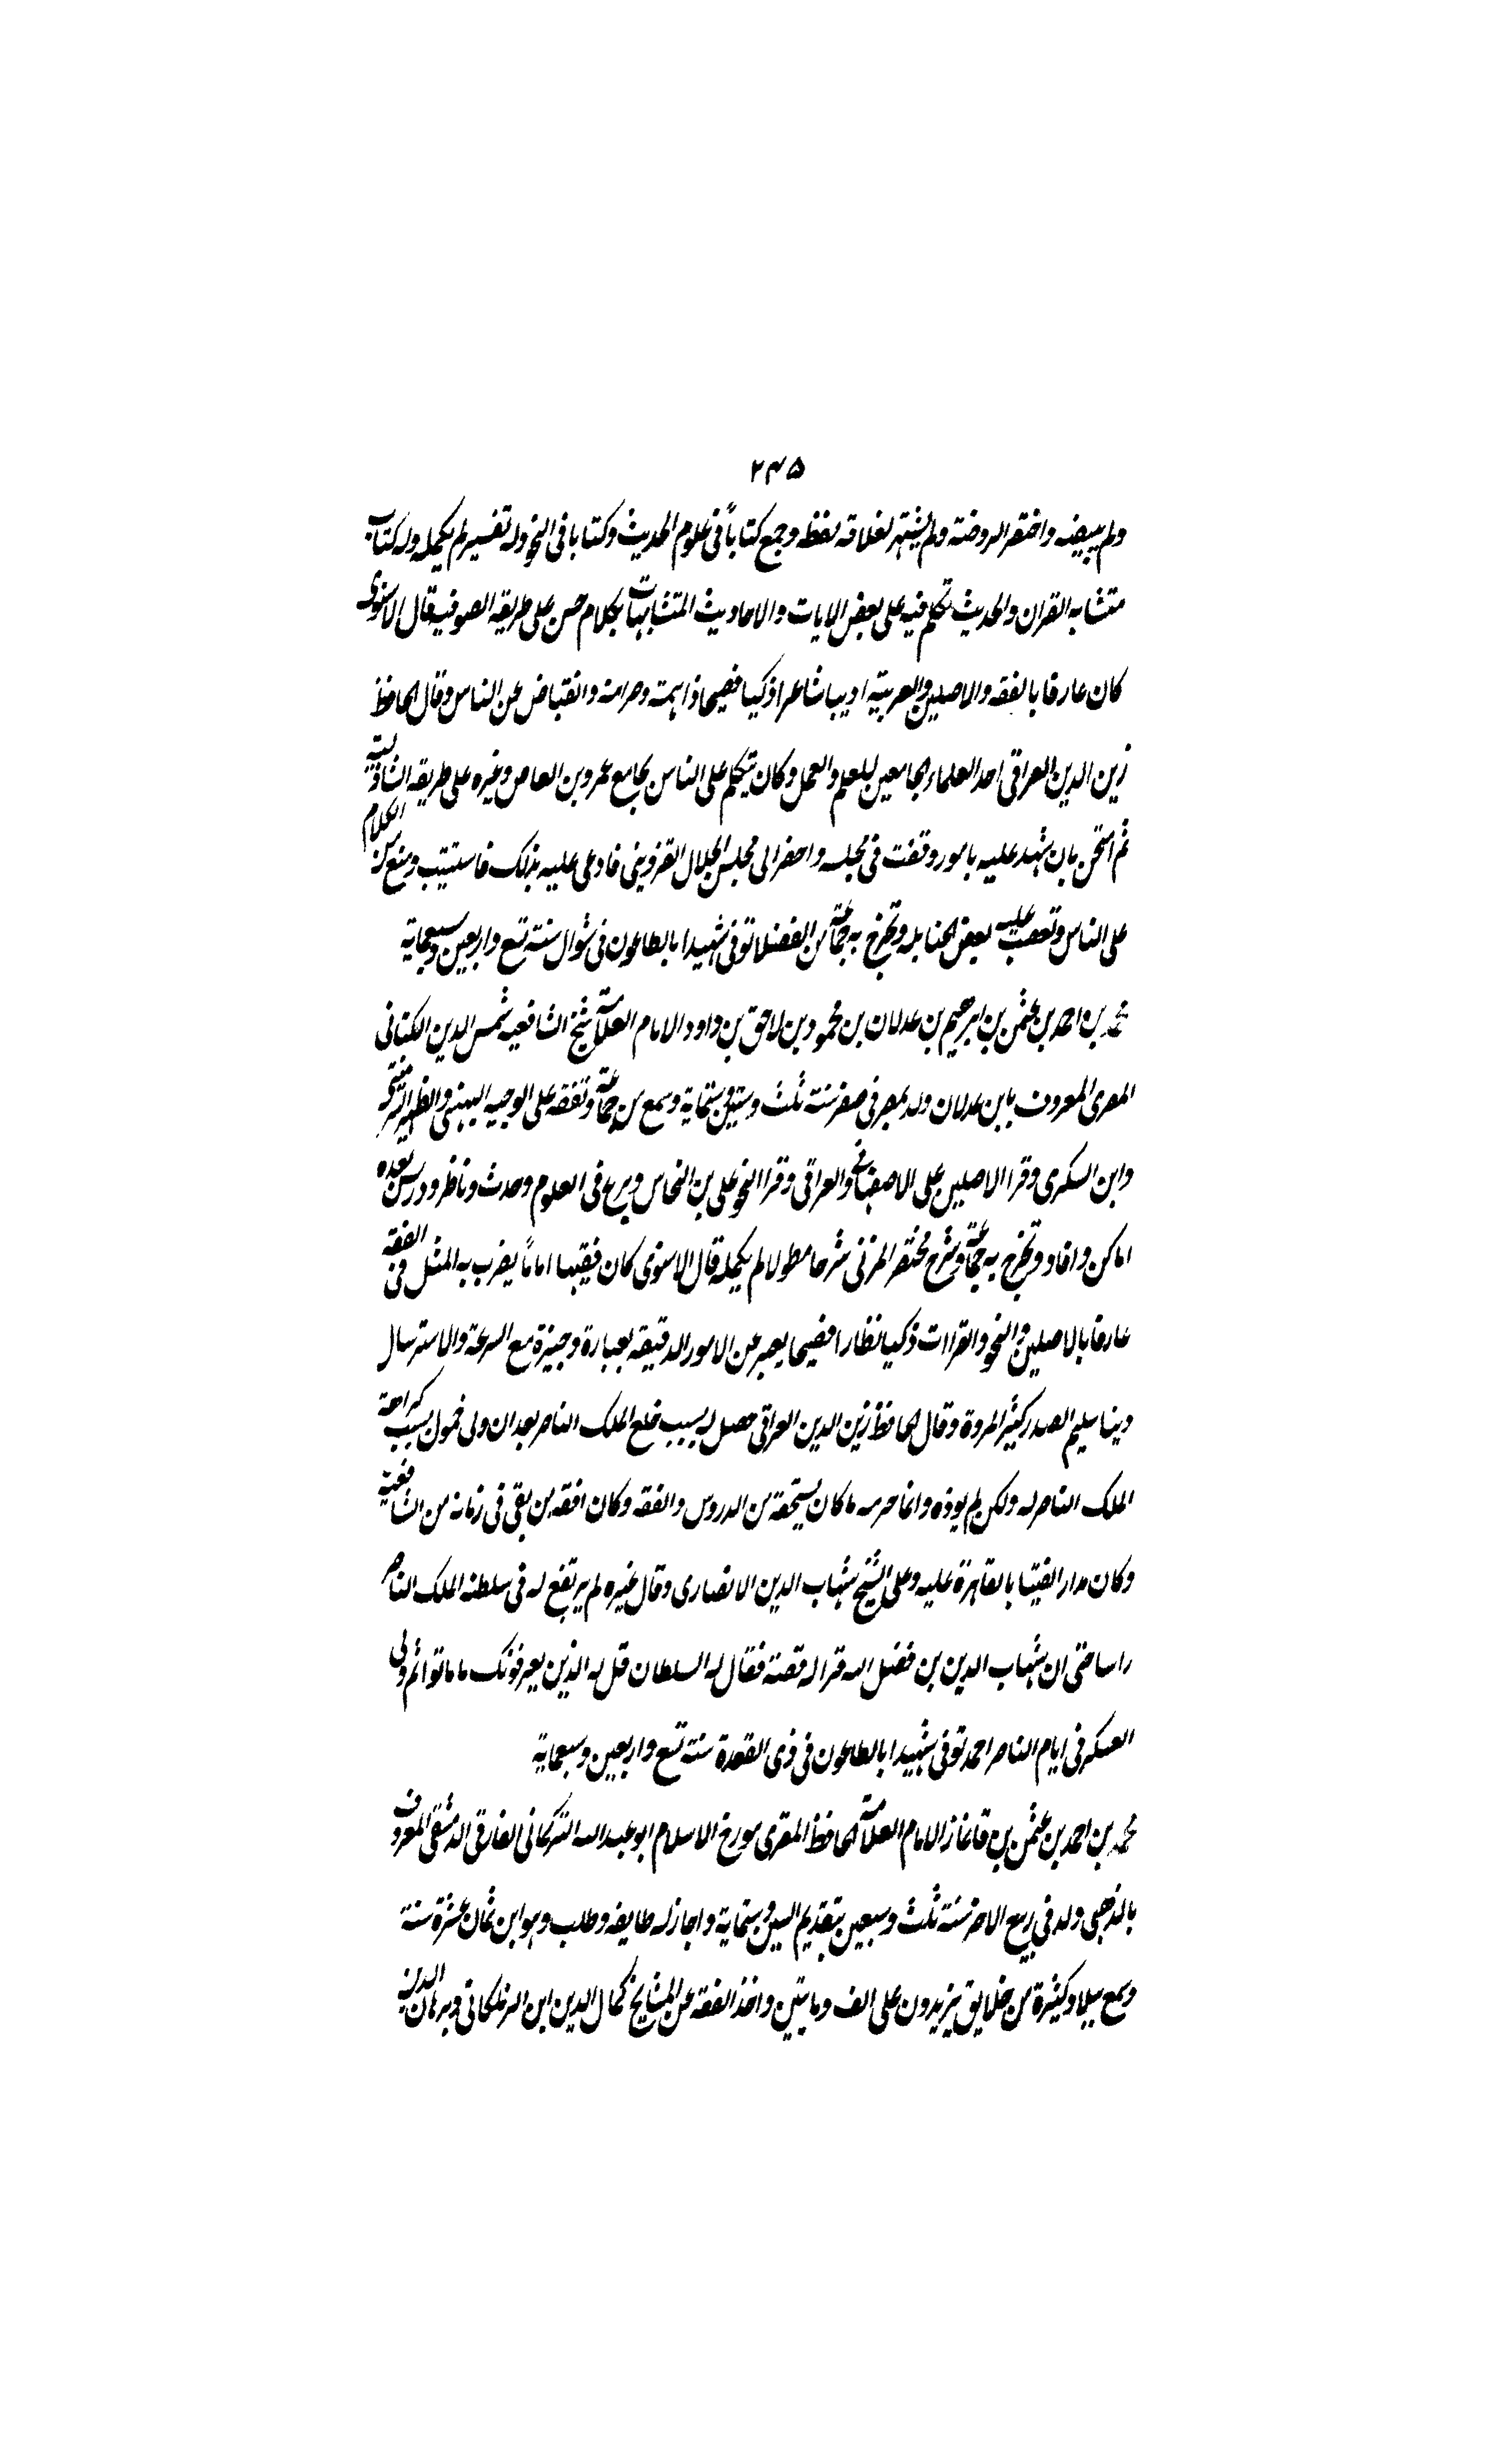 ٢٤٥
ولم يبيضه واختصر الروضة ولم يشتهر لغلاقة لفظه وجمع كتاباً فى علوم الحديث وكتابا فى النحو وله تفسير لم يكمله وله كتاب
متشابه القران والحديث تكلم فيه على بعض الايات والاحاديث المتشابهات بكلام حسن على طريقه الصوفيه قال الاسنوى
كان عارفا بالفقه والاصلين والعربيه اديبا شاعرا ذكيا فصيحا ذا همة وصرامة وانقباض عن الناس وقال الحافظ
زين الدين العراقى احد العلماء الجامعين للعلم والعمل وكان يتكلم على الناس بجامع عمرو بن العاص وغيره على طريقه الشاذلية
ثم امتحن بان شهد عليه بامور وقفت فى مجلسه واحضر الى مجلس الجلال القزوينى فادعى عليه بذلك فاستتيب ومنع من الكلام
على الناس وتعصب عليه بعض الحنابله وتخرج به جماعة من الفضلا توفى شهيدا بالطاعون فى شوال سنة تسع واربعين وسبعماية
محمد بن احمد بن عثمن بن ابرهيم بن عدلان بن محمود بن لاحق بن داود الامام العلامة شيخ الشافعيه شمس الدين الكنانى
المصرى المعروف بابن عدلان ولد بمصر فى صفر سنة ثلث وستين وستماية وسمع من جماعة وتفقه على الوجيه البهنسى والظهير التزمنتى
وابن السكرى وقرا الاصلين على الاصفهانى والعراقى وقرا النحو على بن النحاس وبرع فى العلوم وحدث وناظر ودرس بعده
اماكن وافاد وتخرج به جماعة وشرح مختصر المزنى شرحا مطولا لم يكمله قال الاسنوى كان فقيها اماماً يضرب به المثل فى الفقه
عارفا بالاصلين والنحو والقراات ذكيا نظارا فصيحا يعبر عن الامور الدقيقه بعبارة وجيزة مع السرعة والاسترسال
دينا سليم الصدر كثير المروة وقال الحافظ زين الدين العراقى حصل له بسبب خلع الملك الناصر بعد ان ولى خمول بسبب كراهة
الملك الناصر له ولكن لم يوذه وانما حرمه ما كان يستحقه من الدروس والفقه وكان افقه من بقى فى زمانه من الشافعية
وكان مدار الفتيا بالقاهرة عليه وعلى الشيخ شهاب الدين الانصارى وقال غيره لم يرتفع له فى سلطنة الملك الناصر
راسا حتى ان شهاب الدين بن فضل الله قرا له قصة فقال له السلطان قل له الذين يعرفونك ما ماتوا ثم ولى
العسكر فى ايام الناصر احمد توفى شهيدا بالطاعون فى ذى القعدة سنة تسع واربعين وسبعماية
محمد بن احمد بن عثمن بن قايماز الامام العلامة الحافظ المقرى مورخ الاسلام ابو عبد الله التركمانى الفارقى الدمشقى المعروف
بالذهبى ولد فى ربيع الاخر سنة ثلث وسبعين بتقديم السين وستماية واجاز له طايفه وطلب وهو ابن ثمان عشرة سنة
وسمع ببلاد كثيرة من خلايق يزيدون على الف ومايتين واخذ الفقه عن المشايخ كمال الدين ابن الزملكانى وبرهان الدين